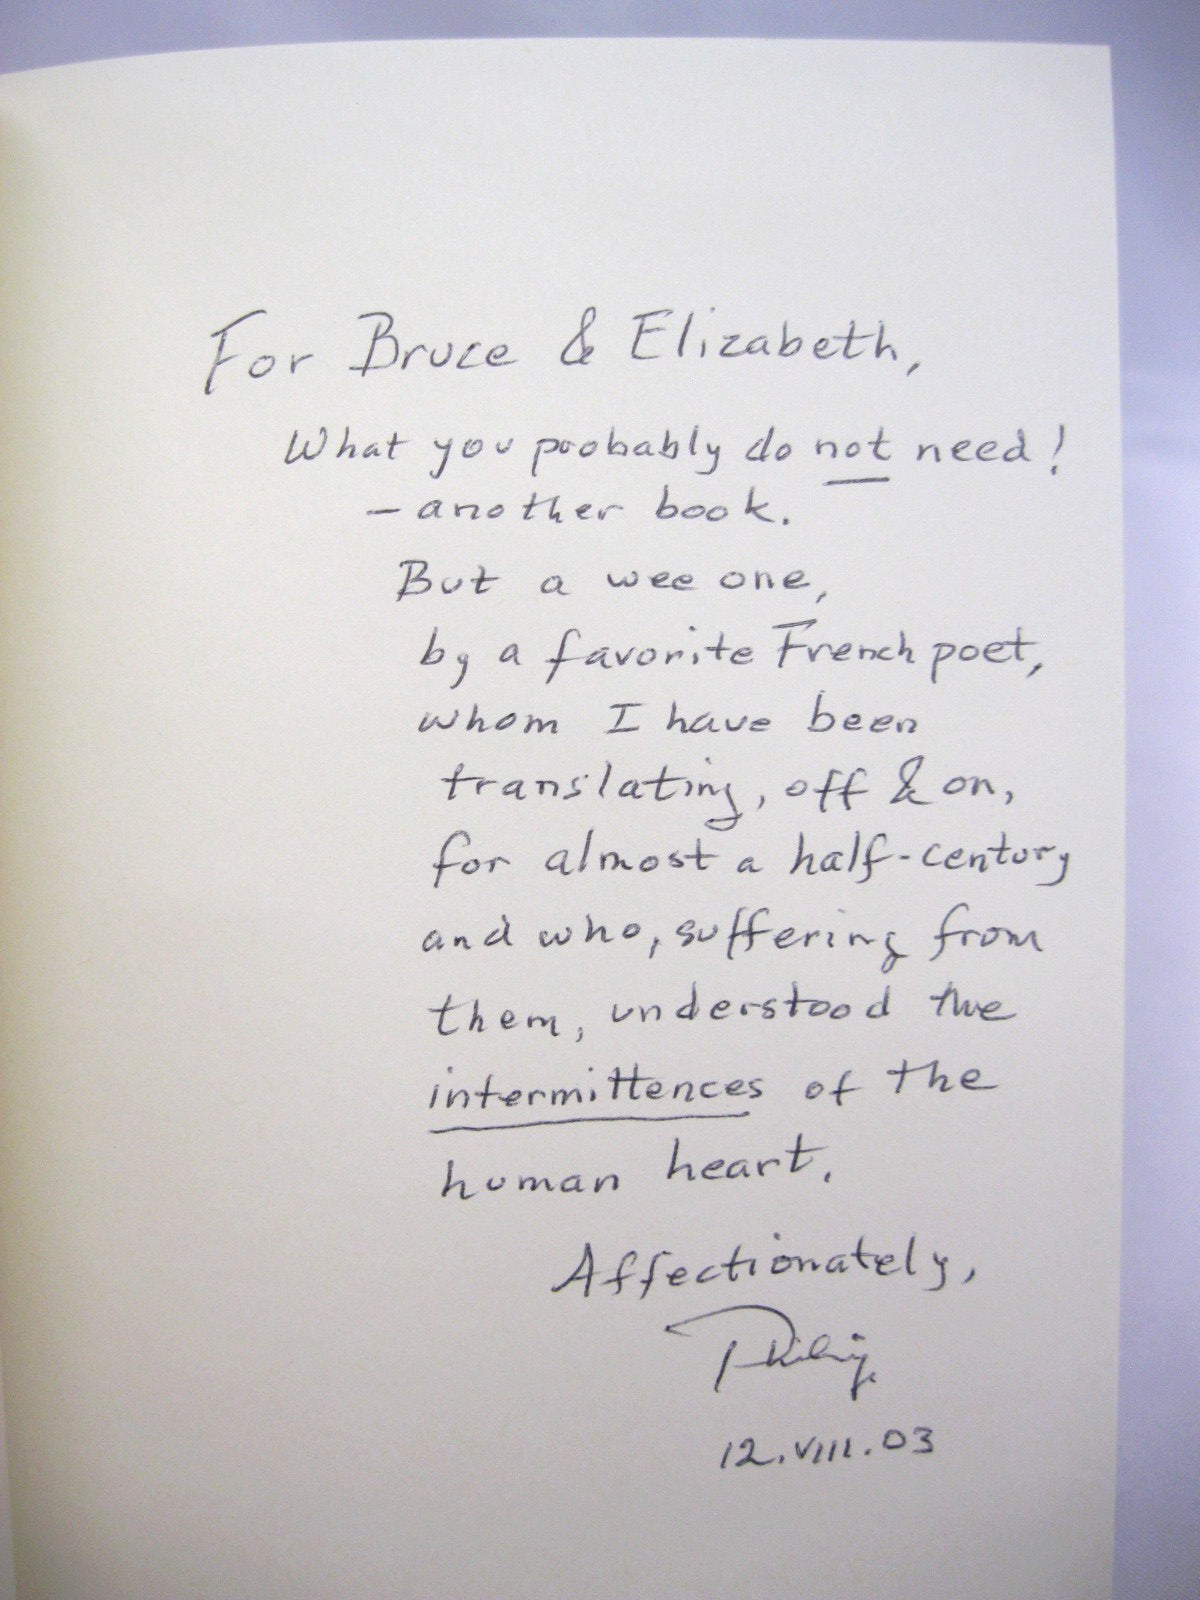 For Bruce & Elizabeth,
What you probably do not need!
— another book.
But a wee one,
by a favorite French poet,
whom I have been
translating, off & on,
for almost a half-century
and who, suffering from
them, understood the
intermittences of the
human heart.
Affectionately,
Philip
12.VIII.03